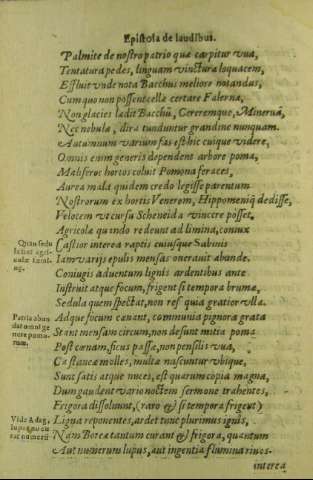 Epistola de laudibus.
Palmite de nostro patrio quæ carpitur vua,
Tentatura pedes, linguam vinctura loquacem,
Effluit vnde nota Bacchus meliore notandus,
Cum quo non possent cellæ certare Falerna,
Non glacies lædit Bacchũ, Cereremque, Mineruã,
Nec nebula, dira tunduntur grandine nunquam.
Autumnum varium fas est hic cuique videre,
Omnis enim generis dependent arbore poma,
Malifero hortos coluit Pomona feraces,
Aurea mala quidem credo legisse parentum
Nostrorum ex hortis Venerem, Hippomeniq́ dedisse,
Velocem vt cursu Scheneida vincere posset.
Agricolæ quando redeunt ad limina, connux
Castior interea raptis cuiusque Sabinis
Iam varijs epulis mensas onerauit abunde.
Coniugis aduentum lignis ardentibus ante
Instruit atque focum, frigent si tempora brumæ,
Sedula quem spectat, non res quia gratior vlla.
Adque focum canant, communia pignora grata
Stant mensam circum, non desunt mitia poma
Post cœnam, ficus passæ, non pensilis vua,
Castaneæ molles, multæ nascuntur vbique,
Sunt satis atque nuces, est quarum copia magna,
Dum gaudent vario noctem sermone trahentes,
Frigora dissoluunt, (raro & si tempora frigent)
Ligna reponentes, ardet tunc plurimus ignis,
Nam Boreæ tantum curant & frigora, quantum
Aut numerum lupus, aut ingentia flumina ripas.
interea
Patria abun